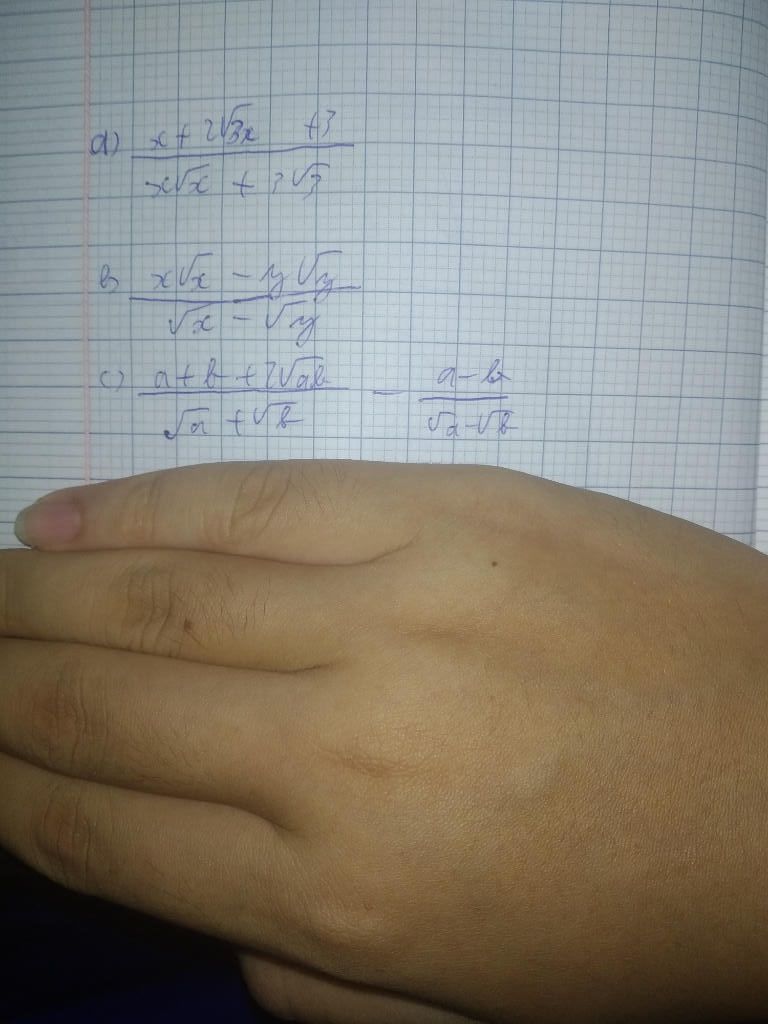 a) x + 2√3x + 3
x√x + 3√3
b) x√x - y√y
√x - √y
c) a + b + 2√ab - a - b
√a + √b √a - √b